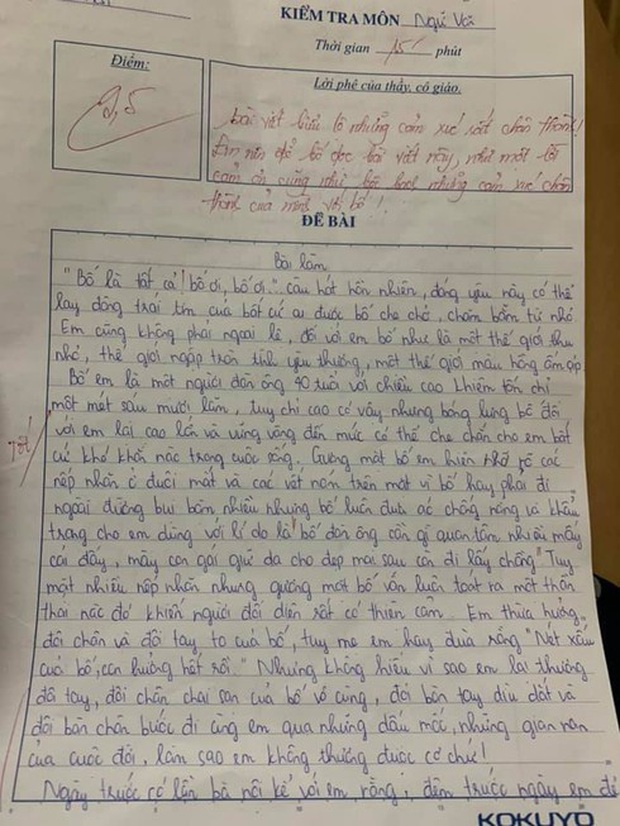 KIỂM TRA MÔN Ngữ Văn
Thời gian 15' phút
Điểm:
9,5
Lời phê của thầy, cô giáo.
Bài viết biểu lộ những cảm xúc rất chân thành!
Em nên để bố đọc bài viết này, như một lời
cảm ơn cũng như bộc bạch những cảm xúc chân
thành của mình với bố!
ĐỀ BÀI
Bài làm
"Bố là tất cả! bố ơi, bố ơi." câu hát hồn nhiên, đáng yêu này có thể
lay động trái tim của bất cứ ai được bố che chở, chăm bẵm từ nhỏ
Em cũng không phải ngoại lệ, đối với em bố như là một thế giới thu
nhỏ, thế giới ngập tràn tình yêu thương, một thế giới màu hồng ấm áp.
Bố em là một người đàn ông 40 tuổi với chiều cao khiêm tốn chỉ
một mét sáu mươi lăm, tuy chỉ cao có vậy nhưng bóng lưng bố đối
với em lại cao lớn và vững vàng đến mức có thể che chắn cho em bất
Tốt
cứ khó khăn nào trong cuộc sống. Gương mặt bố em hiện rõ các
nếp nhăn ở đuôi mắt và các vết nám trên mặt vì bố hay phải đi
ngoài đường bụi bặm nhiều nhưng bố luôn đưa áo chống nắng và khẩu
trang cho em dùng với lí do là "bố đàn ông cần gì quan tâm nhiều mấy
cái đấy, mày con gái giữ da cho đẹp mai sau còn đi lấy chồng" Tuy
mặt nhiều nếp nhăn nhưng gương mặt bố vẫn luôn toát ra một thần
thái nào đó khiến người đối diện rất có thiện cảm. Em thừa hưởng
đôi chân và đôi tay to của bố, tuy mẹ em hay đùa rằng "Nét xấu
của bố, con hưởng hết rồi." Nhưng không hiểu vì sao em lại thương
đôi tay, đôi chân chai sạn của bố vô cùng, đôi bàn tay dìu dắt và
đôi bàn chân bước đi cùng em qua những dấu mốc, những gian nan
của cuộc đời, làm sao em không thương được cơ chứ!
Ngày trước có lần bà nội kể với em rằng, đêm trước ngày em đẻ
KOKUYO